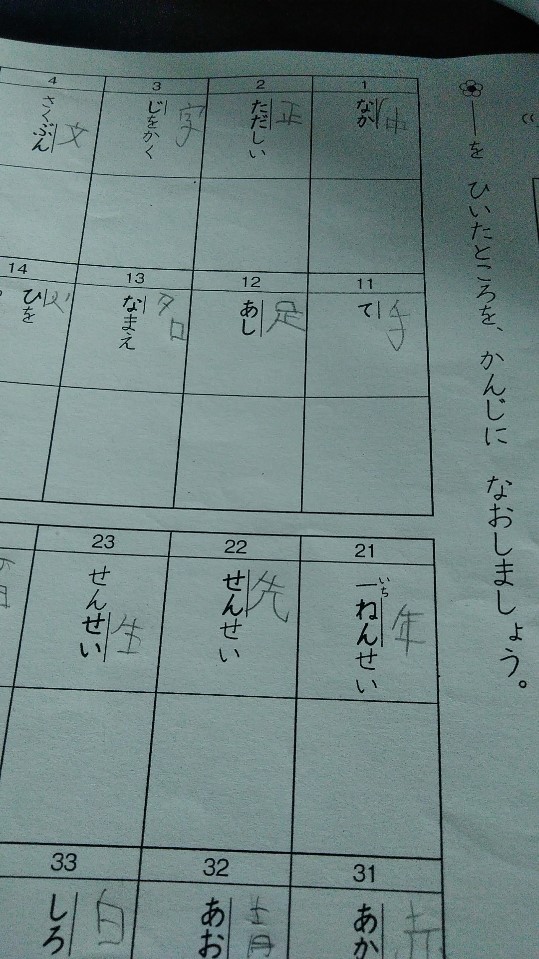 ──を ひいたところを、かんじに なおしましょう。
1
なか
中
2
ただしい
正
3
じをかく
字
4
さくぶん
文
11
て
手
12
あし
足
13
なまえ
名
14
ひを
火
21
一ねんせい
いち
年
22
せんせい
先
23
せんせい
生
31
あか
赤
32
あお
青
33
しろ
白